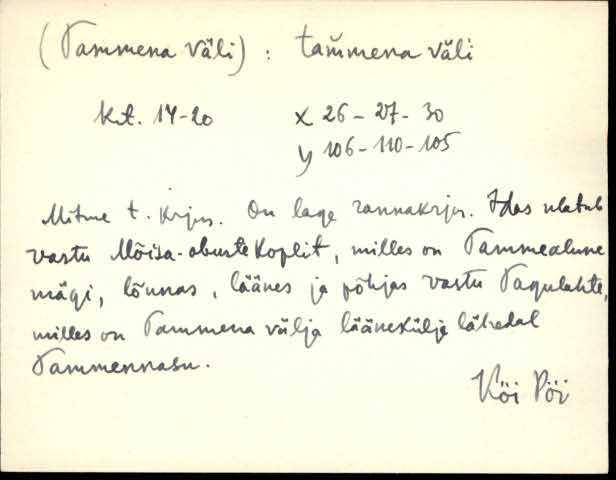 (Tammena väli) : tam̆mena väli
Krt. 14-20 x 26 - 27 - 30
y 106 - 110 - 105
Mitme t. krjm. On lage rannakrjm. Idas ulatub
vastu Mõisa-obuste Koplit, milles on Tammealune
mägi, lõunas, läänes ja põhjas vastu Tagulahte,
milles on Tammena välja läänekülje lähedal
Tammennasu.
Köi Pöi